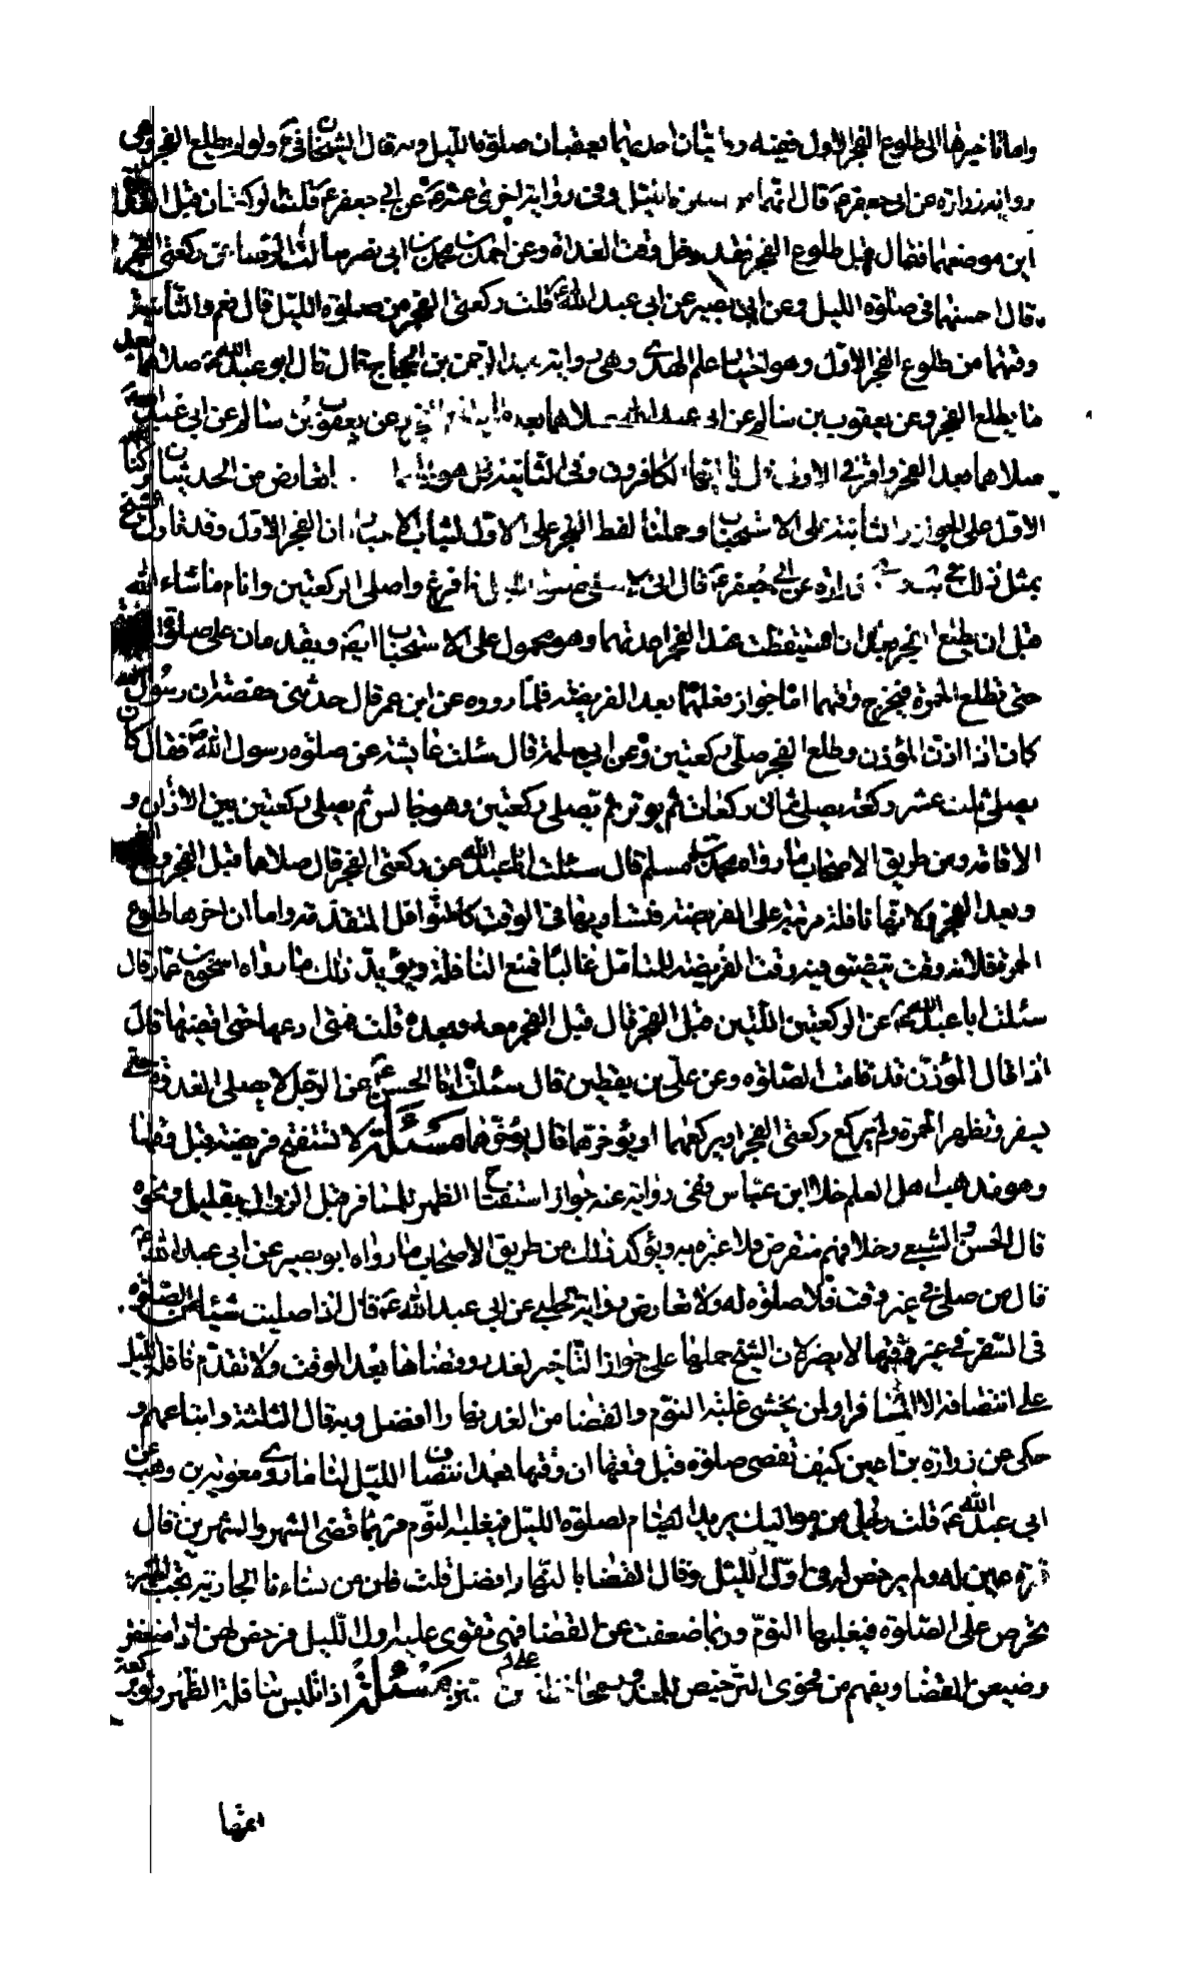 واما تأخيرها الى طلوع الفجر الاول ففيه روايتان احديهما يعقبان صلوة الليل وبه قال الشيخان في ولو لم يطلع الفجر وهي
رواية زرارة عن ابى جعفر ع قال انهما من صلوة الليل وفى رواية اخرى عنه عن ابي جعفر ع قلت لو كعتان قبل الغداة
اين موضعهما فقال قبل طلوع الفجر فقد دخل وقت الغداة وعن احمد بن محمد بن ابى نصر سالت الرضا عن ركعتى الفجر
قال احشهما فى صلوة الليل وعن ابى بصير عن ابى عبد الله ع قلت ركعتى الفجر من صلوة الليل قال نعم والثانية
وقتهما من طلوع الفجر الاول وهو اختيار علم الهدى وهى رواية عبد الرحمن بن الحجاج قال قال ابو عبد الله ع صلاهما بعد
ما يطلع الفجر وعن يعقوب بن سالم عن ابى عبد الله صلاهما بعد الفجر عن يعقوب بن سالم عن ابى عبد الله
صلاهما بعد الفجر واقرء فى الاولى قل يا ايها الكافرون وفى الثانية قل هو الله التعارض من الحديثان وكنا
الاول على الجواز والثانية على الاستحباب وحملنا لفظ الفجر على الاول لئلا ان الفجر الاول وقد تاول الشيخ
بمثل ذلك زرارة عن ابى جعفر ع قال انى لاصلى صلوة الليل فافرغ واصلى الركعتين وانام ما شاء الله
قبل ان يطلع الفجر فان استيقظت عند الفجر اعدتهما وهو محمول على الاستحباب ايضا ويقدمان على صلوة
حتى تطلع الحمرة فيخرج وقتهما اما جواز فعلهما بعد الفريضة فلما رووه عن ابن عمر قال حدثتنى حفصة ان رسول الله
كان اذا اذن المؤذن وطلع الفجر صلى ركعتين وعن ابى سلمة قال سئلت عايشة عن صلوة رسول الله ص فقال كان
يصلى ثلث عشر ركعة يصلى ثمانى ركعات ثم يوتر ثم يصلى ركعتين وهو جالس ثم يصلى ركعتين بين الاذان و
الاقامة ومن طريق الاصحاب ما رواه محمد بن مسلم قال سئلت ابا عبد الله عن ركعتى الفجر قال صلاهما قبل الفجر ومع الفجر
وبعد الفجر ولانها نافلة مرتبة على الفريضة فتساويها فى الوقت كالنوافل المتقدمة واما ان اخرها طلوع
الحمرة فلانه وقت يتضيق فيه وقت الفريضة للمتاهل غالبا فمنع النافلة ويؤيد ذلك ما رواه اسحق بن عمار قال
سئلت ابا عبد الله ع عن الركعتين اللتين قبل الفجر قال قبل الفجر معه وبعده قلت فمتى ادعها حتى اقضيها قال
اذا قال المؤذن قد قامت الصلوة وعن على بن يقطين قال سئلت ابا الحسن ع عن الرجل لا يصلى الغداة حتى
يسفر وتظهر الحمرة ولم يركع ركعتى الفجر او يركعهما او يؤخرها قال يؤخرها مسئلة لا تستفتح فريضة قبل وقتها
وهو مذهب اهل العلم خلا ابن عباس ففى رواية عنه جواز استفتاح الظهر للمسافر قبل الزوال بقليل ونحوه
قال الحسن والشعبى وخلافهم منقرض فلا عبرة به ويؤكد ذلك من طريق الاصحاب ما رواه ابو بصير عن ابى عبد الله ع
قال من صلى فى غير وقت فلا صلوة له ولا تعارض برواية الحلبى عن ابى عبد الله ع قال اذا صليت شيئا من الصلوة
فى السفر فى غير وقتها لا يضر لان الشيخ حملها على جواز التاخير لعذر وقضاها بعد الوقت ولا تقدم نافلة الليل
على انتصافه الا لمسافر او لمن يخشى غلبة النوم والقضا من الغد بها افضل وبه قال الثلثة واتباعهم و
حكى عن زرارة بن اعين كيف تقضى صلوة قبل وقتها ان وقتها بعد انتصاف الليل لنا ما روى معوية بن وهب عن
ابى عبد الله ع قلت رجل من مواليك يريد القيام لصلوة الليل فيغلبه النوم فربما قضى الشهر والشهرين قال
قرة عين له ولم يرخص له فى اول الليل وقال القضا بالنهار افضل قلت فان من نساءنا الجارية تحب الخير
تحرص على الصلوة فيغلبها النوم وربما ضعفت عن القضا فهى تقوى عليه اول الليل فرخص لهن اذا ضعفن
وضيعن القضا ويفهم من فحوى الترخيص للعذر مسئلة اذا تلبس بنافلة الظهر ولو بركعة
اتمها